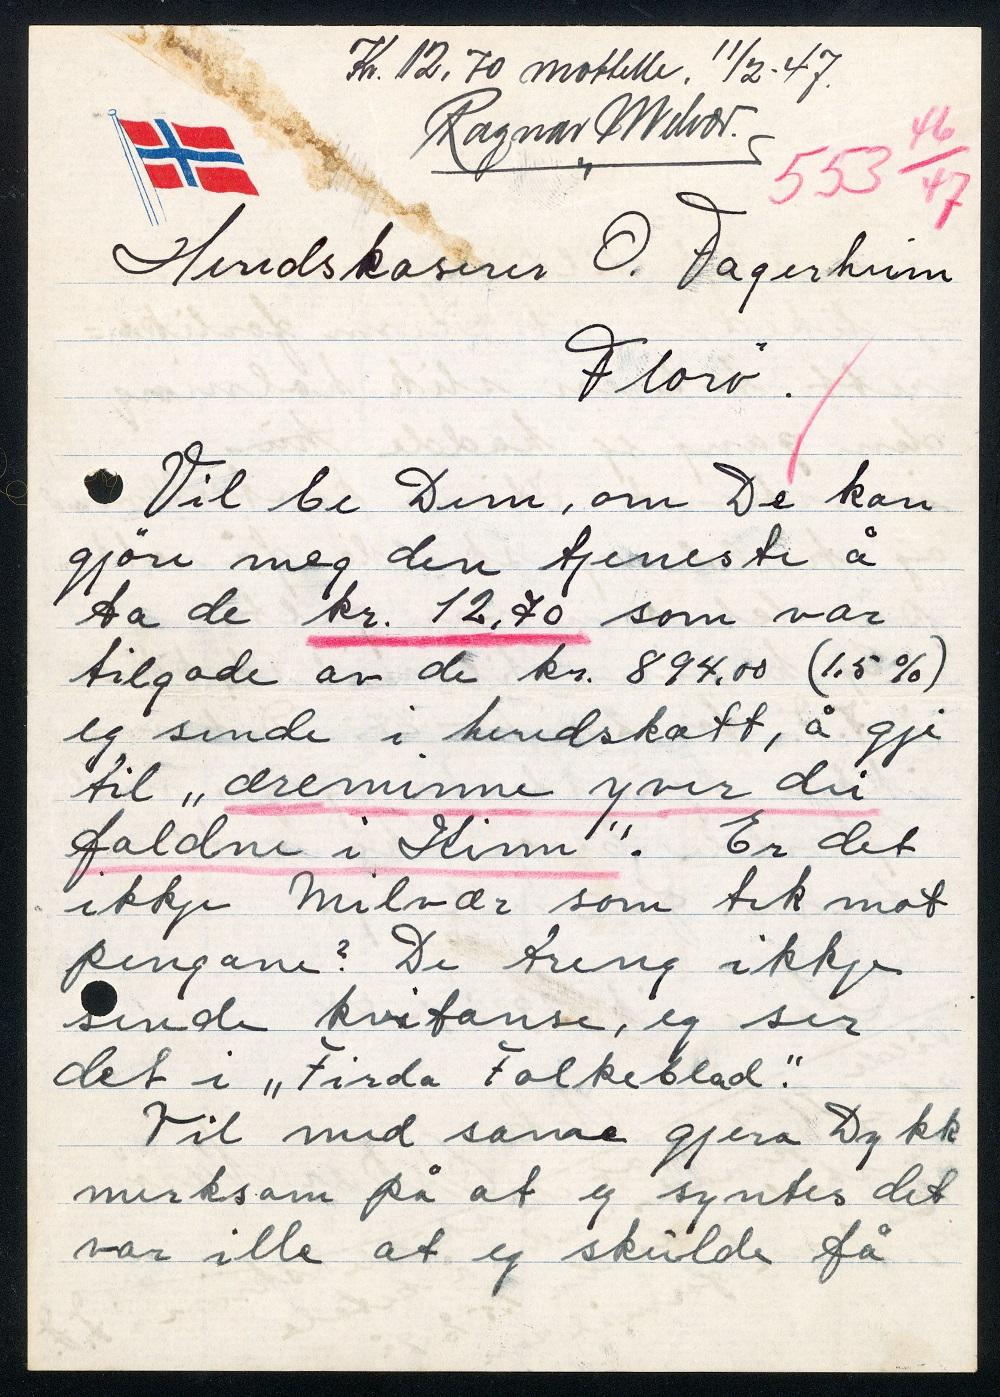 Kr. 12,70 mottke. 11/2-47.
Ragnar Milvær.
553 46/47
Heredskaserer O. Fagerheim
Florö.
Vil be Dem, om De kan
gjöre meg den tjeneste å
ta de kr. 12,70 som var
tilgode av de kr. 894,00 (1.5 %)
eg sende i heredskatt, å gje
til „æreminne yver dei
faldne i Kinn". Er det
ikkje Milvær som tek mot
pengane? De treng ikkje
sende kvitanse, eg ser
det i „Firda Folkeblad".
Vil med same gjera Dykk
merksam på at eg syntes det
var ille at eg skulde få